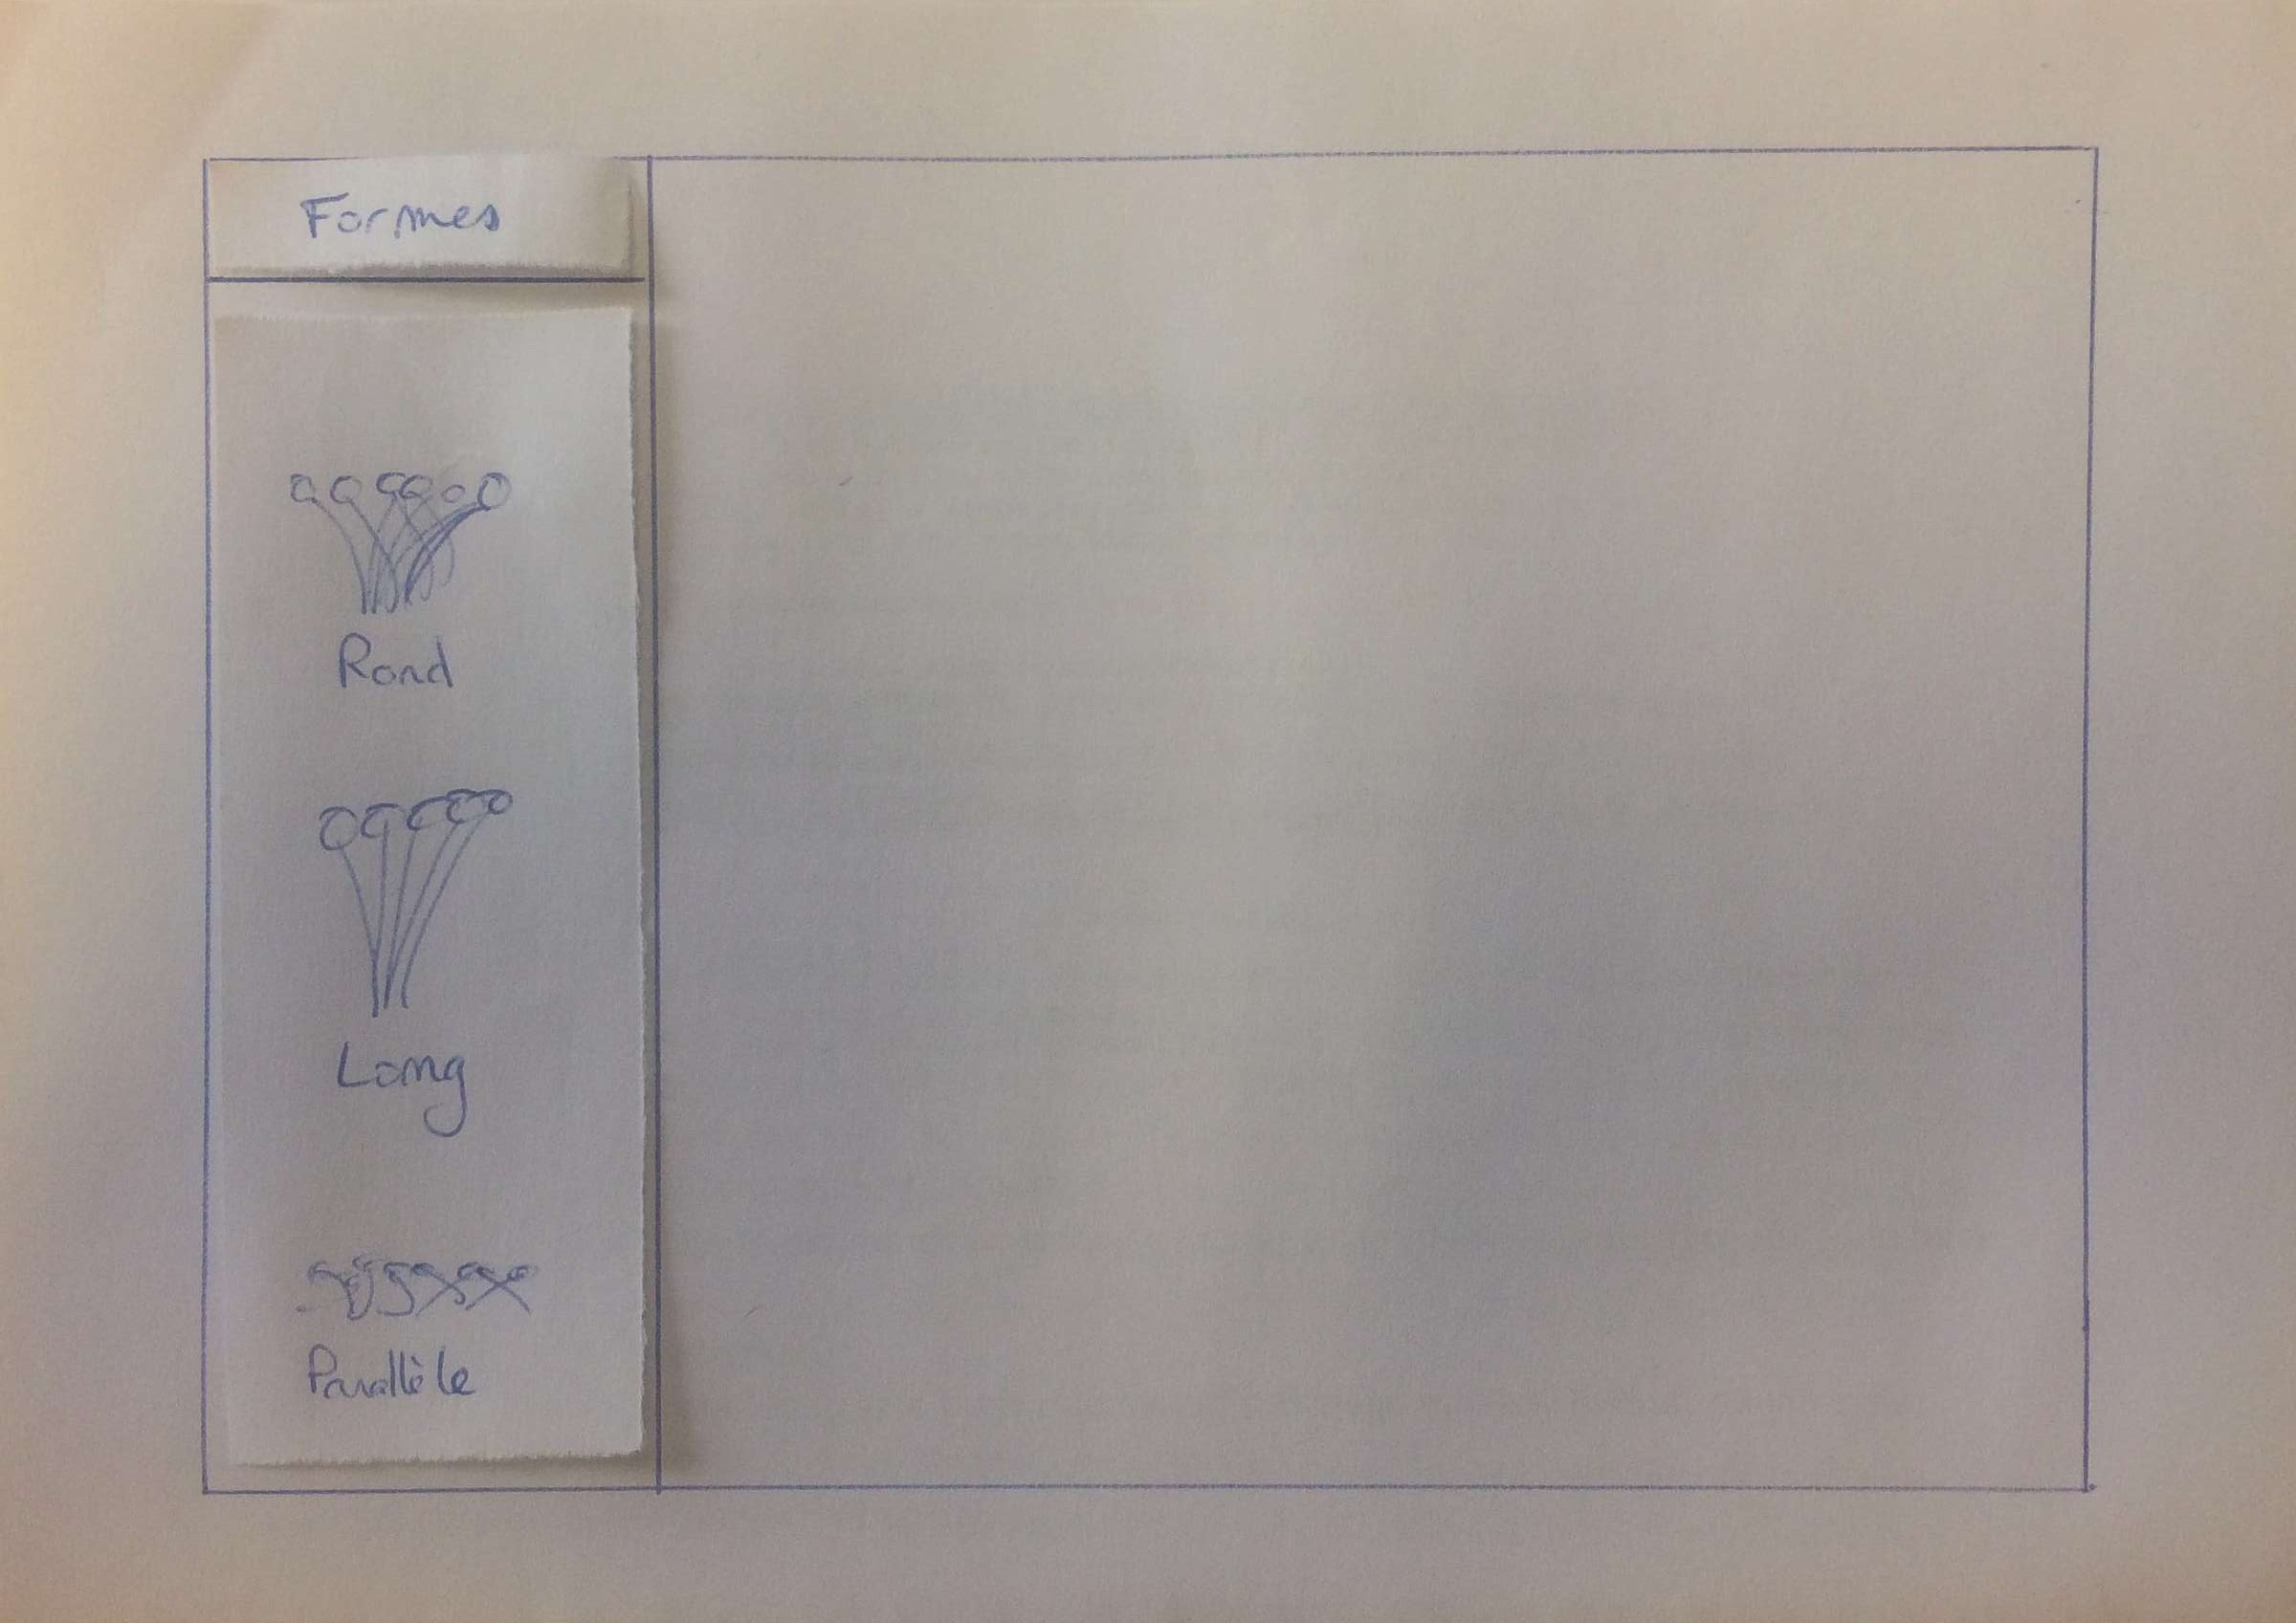 Formes
Rond
Long
Parallèle